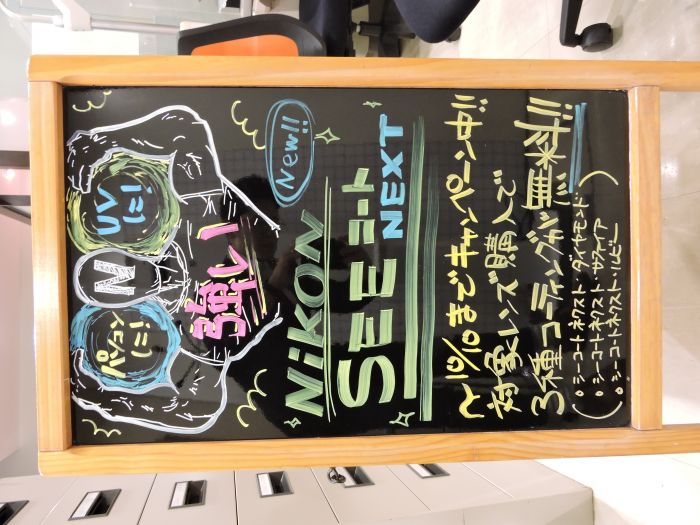 パソコンに!
N
UVに!
強い!
New!!
NiKON
SEEコート
NEXT
～10/10までキャンペーン中!!
対象レンズ購入で
3種コーティングが無料!!
(・シーコートネクスト ダイヤモンド
・シーコートネクスト サファイア
・シーコートネクスト ルビー)